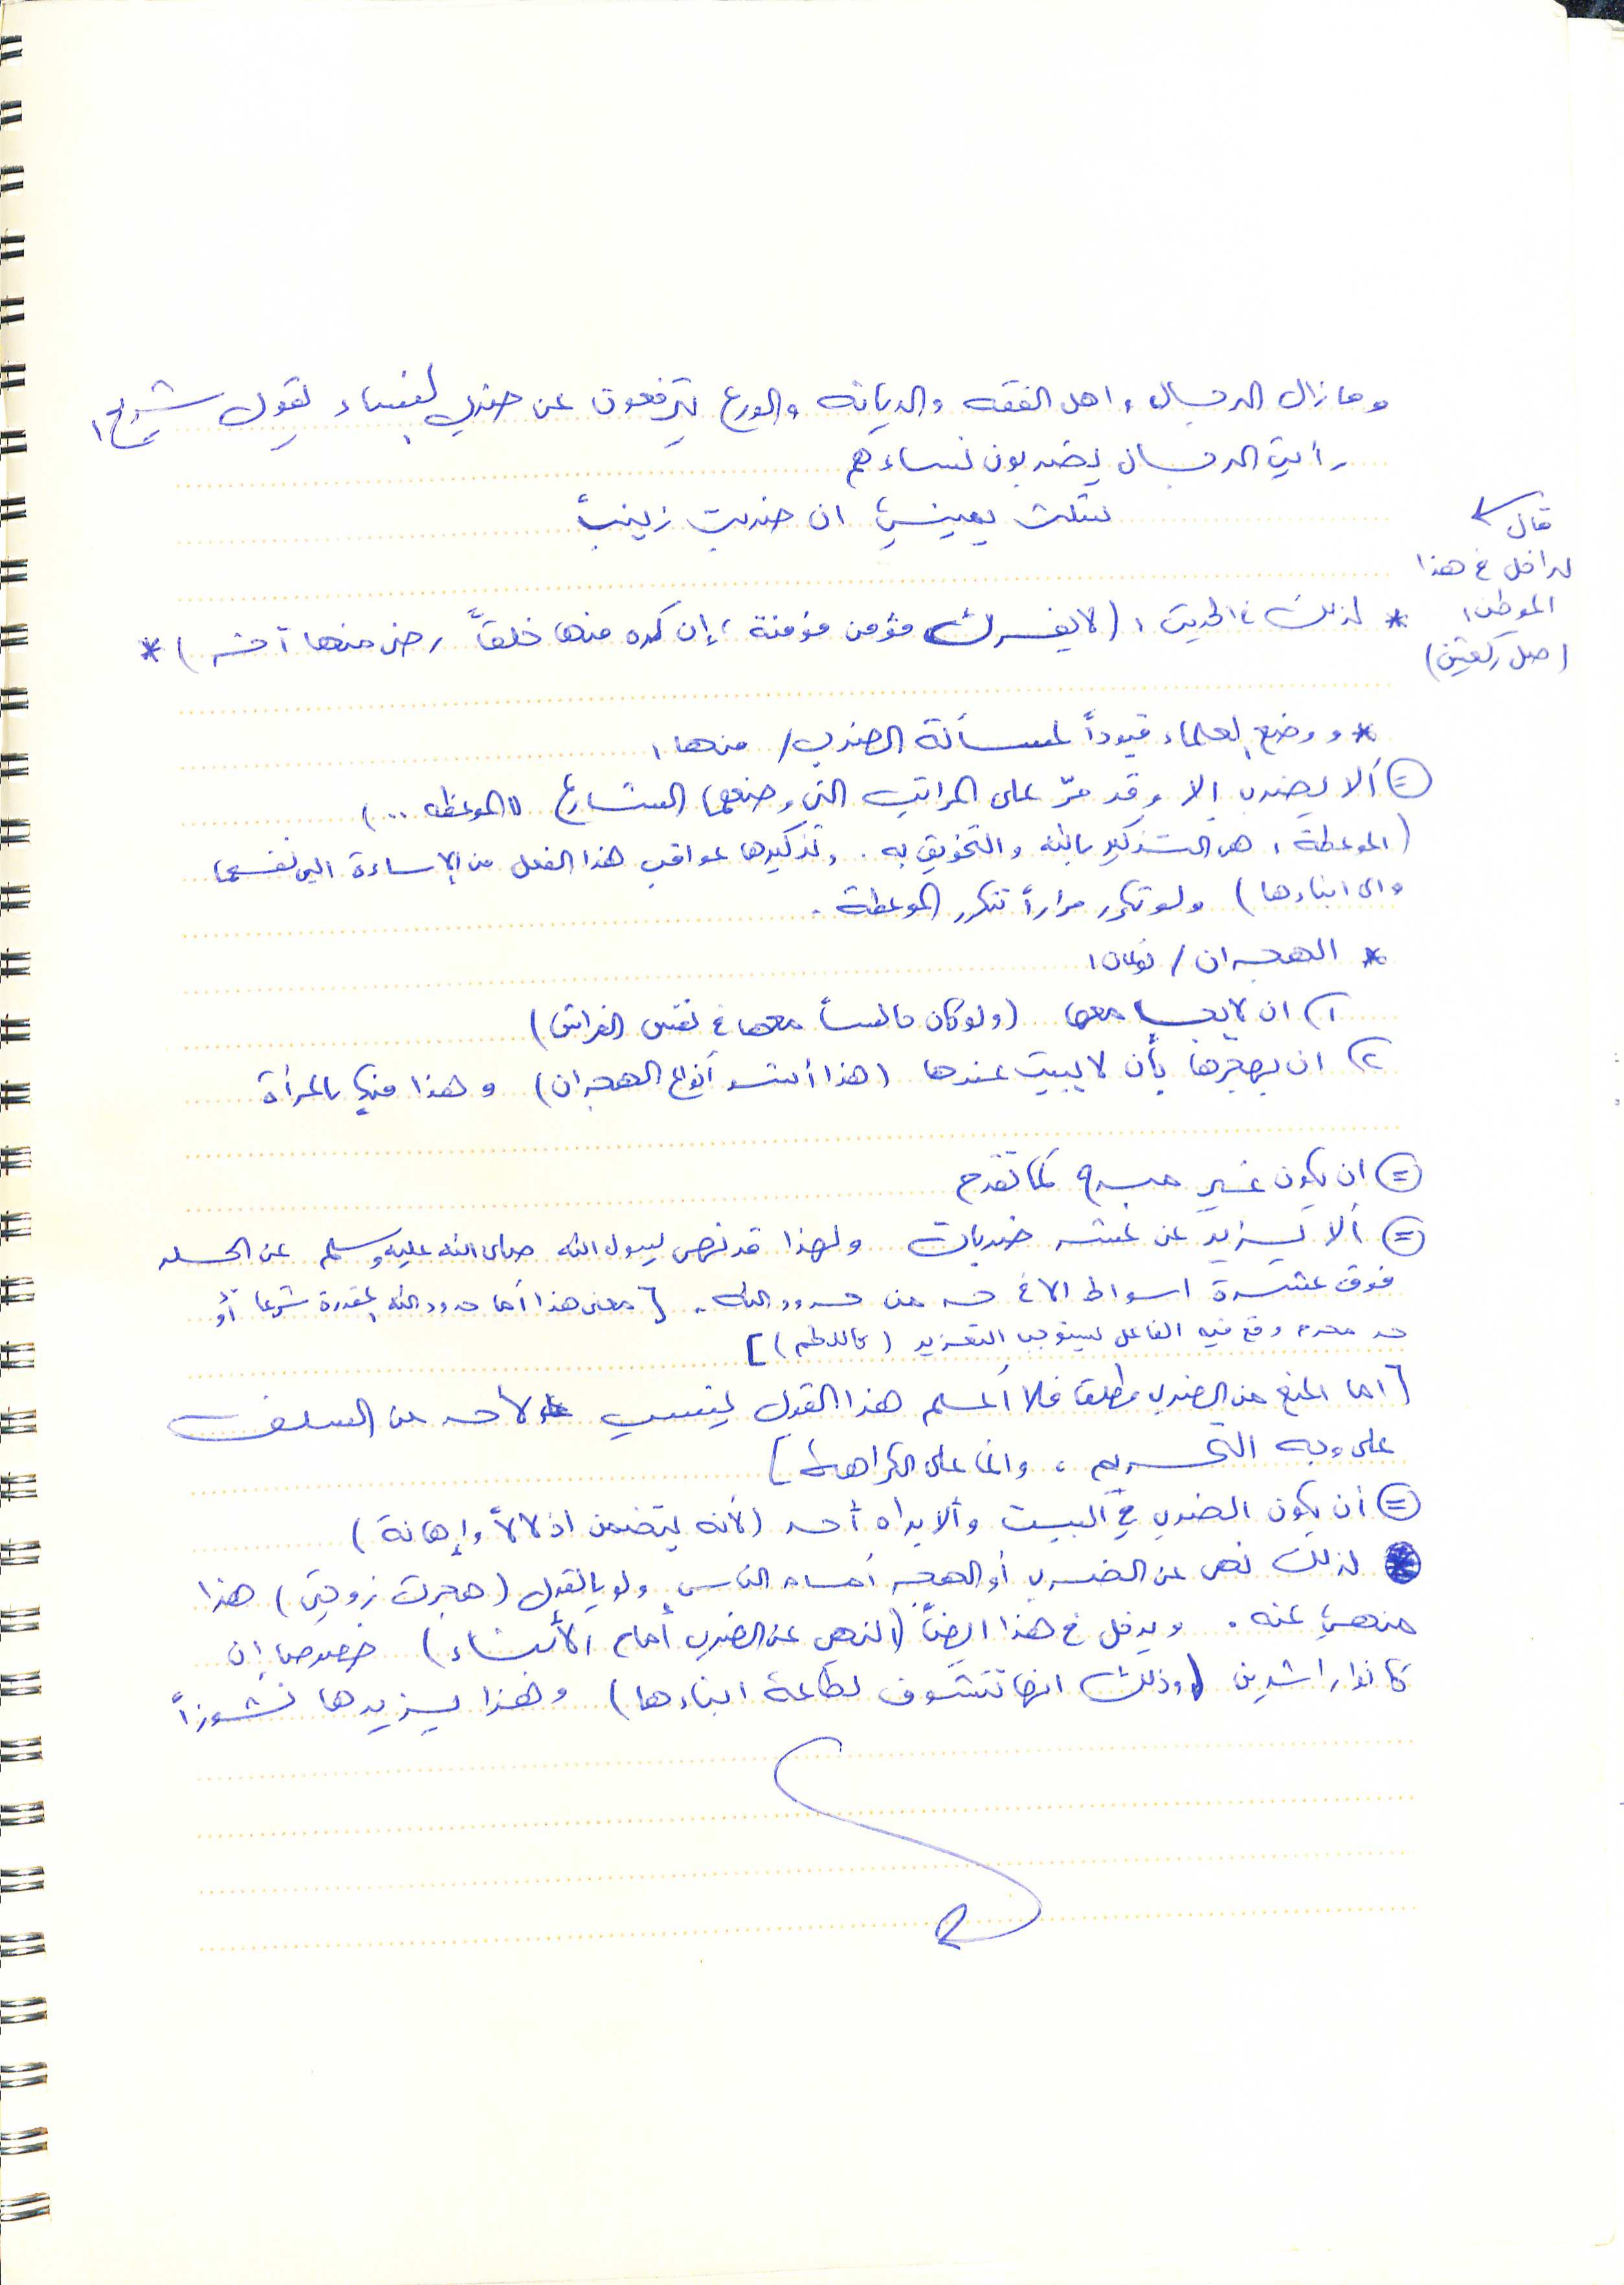 وما زال الرجال، اهل الفقه والديانه والورع يترفعون عن ضرب النساء يقول شريح:
رأيت الرجال يضربون نساءهم
فشلت يميني ان ضربت زينباً
قال
لداخل في هذا
الموطن:
(صل ركعتين)
* لذلك في الحديث: (لا يفرك مؤمن مؤمنة، إن كره منها خلقاً رضي منها آخر) *
* ووضع العلماء قيوداً لمسألة الضرب/ منها:
= ألا يضرب إلا وقد مرّ على المراتب التي وضعها الشارع "الموعظه ..)
(الموعظة: هي التذكير بالله والتخويف به. وتذكيرها عواقب هذا الفعل من الإساءة الى نفسها
والى ابناءها) ولو تكرر مراراً تتكرر الموعظة.
* الهجران/ نوعان:
١) ان لا يجامعها (ولو كان جالساً معها في نفس الفراش)
٢) ان يهجرها بأن لا يبيت عندها (هذا أشد أنواع الهجران) وهذا منكٍ بالمرأة
= ان يكون غير مبرح كما تقدم
= ألا يزيد عن عشر ضربات ولهذا قد نهى رسول الله صلى الله عليه وسلم عن الجلد
فوق عشرة اسواط الا في حد من حدود الله. [معنى هذا أما حدود الله المقدرة شرعا أو
حد محرم وقع فيه الفاعل يستوجب التعزير (كاللطم)]
[اما المنع من الضرب مطلقا فلا أعلم هذا القول ينسب لأحد من السلف
على وجه التحريم، وانما على الكراهة]
= أن يكون الضرب في البيت وألا يراه أحد (لأنه يتضمن اذلالاً وإهانة)
لذلك نهى عن الضرب أو الهجر أمام الناس ولو بالقول (هجرت زوجتي) هذا
منهي عنه. ويدخل في هذا ايضاً (النهي عن الضرب أمام الأبناء) خصوصا إن
كانوا راشدين (وذلك انها تتشوف لطاعة ابناءها) وهذا يزيدها نشوزاً